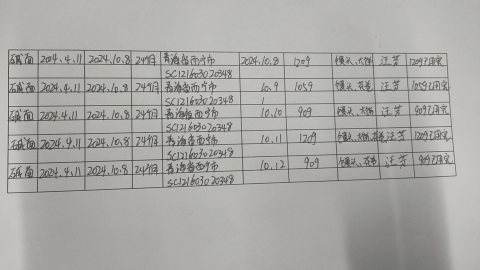 碱面 2024.4.11 2024.10.8 24个月 青海省西宁市 2024.10.8 120g 馒头、大饼 汪芳 120g已用完
SC121603020348
碱面 2024.4.11 2024.10.8 24个月 青海省西宁市 10.9 105g 馒头、花卷 汪芳 105g已用完
SC121603020348
碱面 2024.4.11 2024.10.8 24个月 青海省西宁市 10.10 90g 馒头、大饼 汪芳 90g已用完
SC121603020348
碱面 2024.4.11 2024.10.8 24个月 青海省西宁市 10.11 120g 馒头、大饼、花卷 汪芳 120g已用完
SC121603020348
碱面 2024.4.11 2024.10.8 24个月 青海省西宁市 10.12 90g 馒头、花卷 汪芳 90g已用完
SC121603020348